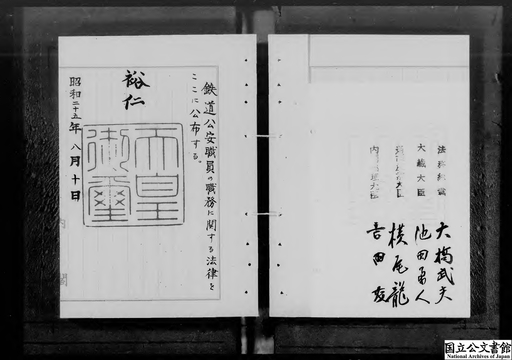 法務総裁 大橋武夫
大蔵大臣 池田勇人
大臣 横尾龍
内閣総理大臣 吉田茂
鉄道公安職員の職務に関する法律を
ここに公布する。
裕仁
天皇
御璽
昭和二十五年八月十日
内閣
国立公文書館
National Archives of Japan